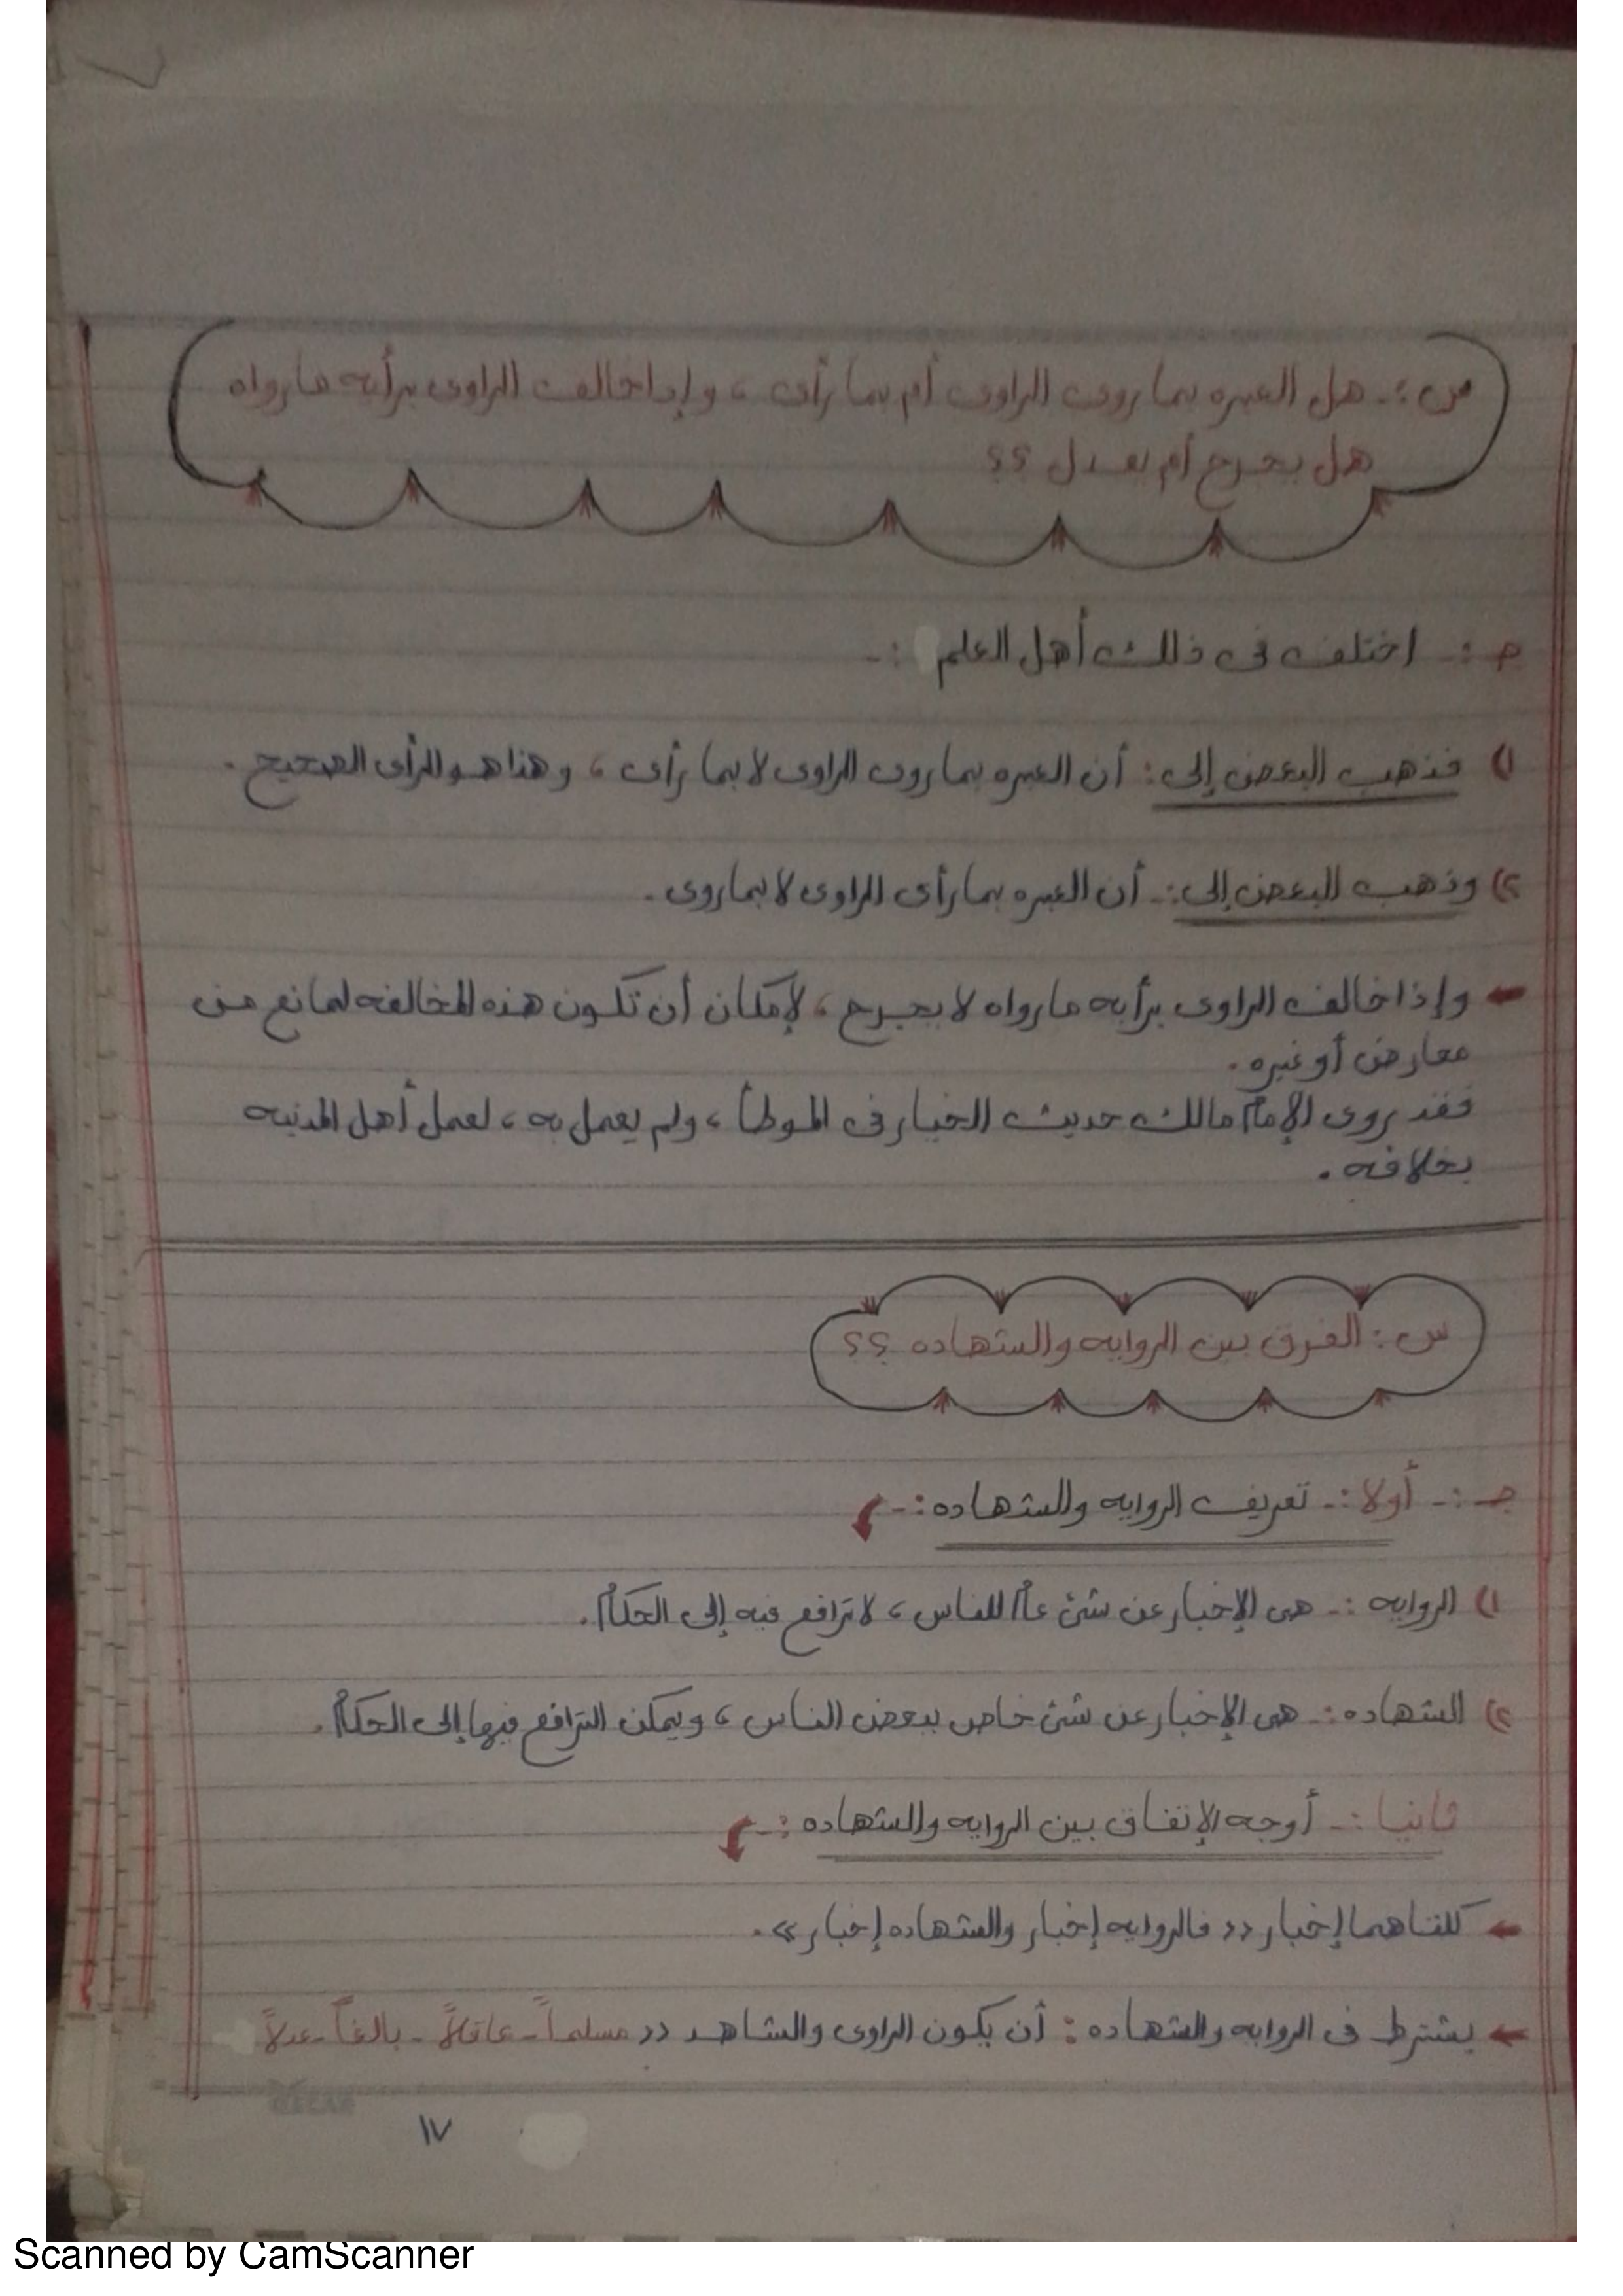 س :- هل العبره بما روى الراوى أم بما رأى ، وإذا خالف الراوى برأيه ما رواه
هل يجرح أم يعدل ؟؟
ج :- اختلف فى ذلك أهل العلم :-
١) فذهب البعض إلى : أن العبره بما روى الراوى لا بما رأى ، وهذا هو الرأى الصحيح .
٢) وذهب البعض إلى :- أن العبره بما رأى الراوى لا بما روى .
← وإذا خالف الراوى برأيه ما رواه لا يجرح ، لإمكان أن تكون هذه المخالفه لمانع من
معارض أو غيره .
فقد روى الإمام مالك حديث الخيار فى الموطأ ، ولم يعمل به ، لعمل أهل المدنيه
بخلافه .
س : الفرق بين الروايه والشهاده ؟؟
جـ :- أولا :- تعريف الروايه والشهاده :-
١) الروايه :- هى الإخبار عن شئ عام للناس ، لا ترافع فيه إلى الحكام .
٢) الشهاده :- هى الإخبار عن شئ خاص ببعض الناس ، ويمكن الترافع فيها إلى الحكام .
ثانيا :- أوجه الإتفاق بين الروايه والشهاده :-
← كلتاهما إخبار << فالروايه إخبار والشهاده إخبار >> .
← يشترط فى الروايه والشهاده : أن يكون الراوى والشاهد << مسلماً - عاقلاً - بالغاً - عدلاً
١٧
Scanned by CamScanner